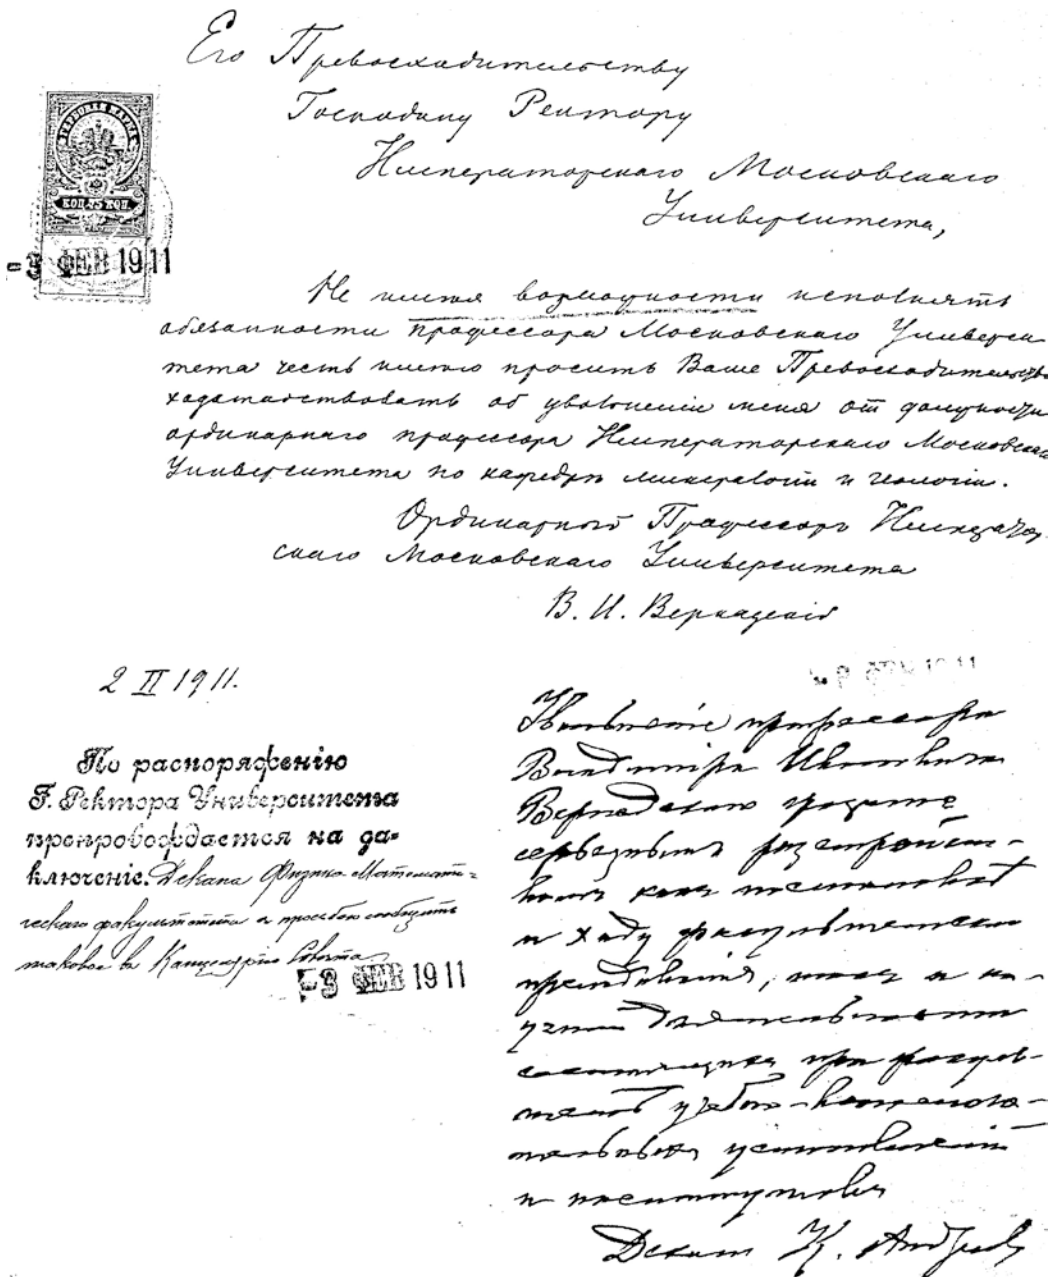 Его Превосходительству
Господину Ректору
Императорскаго Московскаго
Университета,
ГЕРБОВАЯ МАРКА
КОП. 75 КОП.
-3 ФЕВ 1911
Не имея возможности исполнять
обязанности профессора Московскаго Университета
тета честь имею просить Ваше Превосходительство
ходатайствовать об увольнении меня от должности
ординарнаго профессора Императорскаго Московскаго
Университета по кафедре минералогии и геологии.
Ординарный Профессор Император
скаго Московскаго Университета
В. И. Вернадский
2 II 1911.
По распоряженію
Г. Ректора Университета
препровождается на за=
ключеніе. Декана Физико-Математи=
ческаго факультета с просьбою сообщить
таковое в Канцелярію Совета
-3 ФЕВ 1911
Увольненіе профессора
Владиміра Ивановича
Вернадскаго грозит
серьезным разстройст-
вом как
и ходу факультетскаго
преподаванія, так и на-
учной деятельности
состоящих при факуль-
тете учебно-вспомога-
тельных установленій
и институтов
Декан К. Андреев